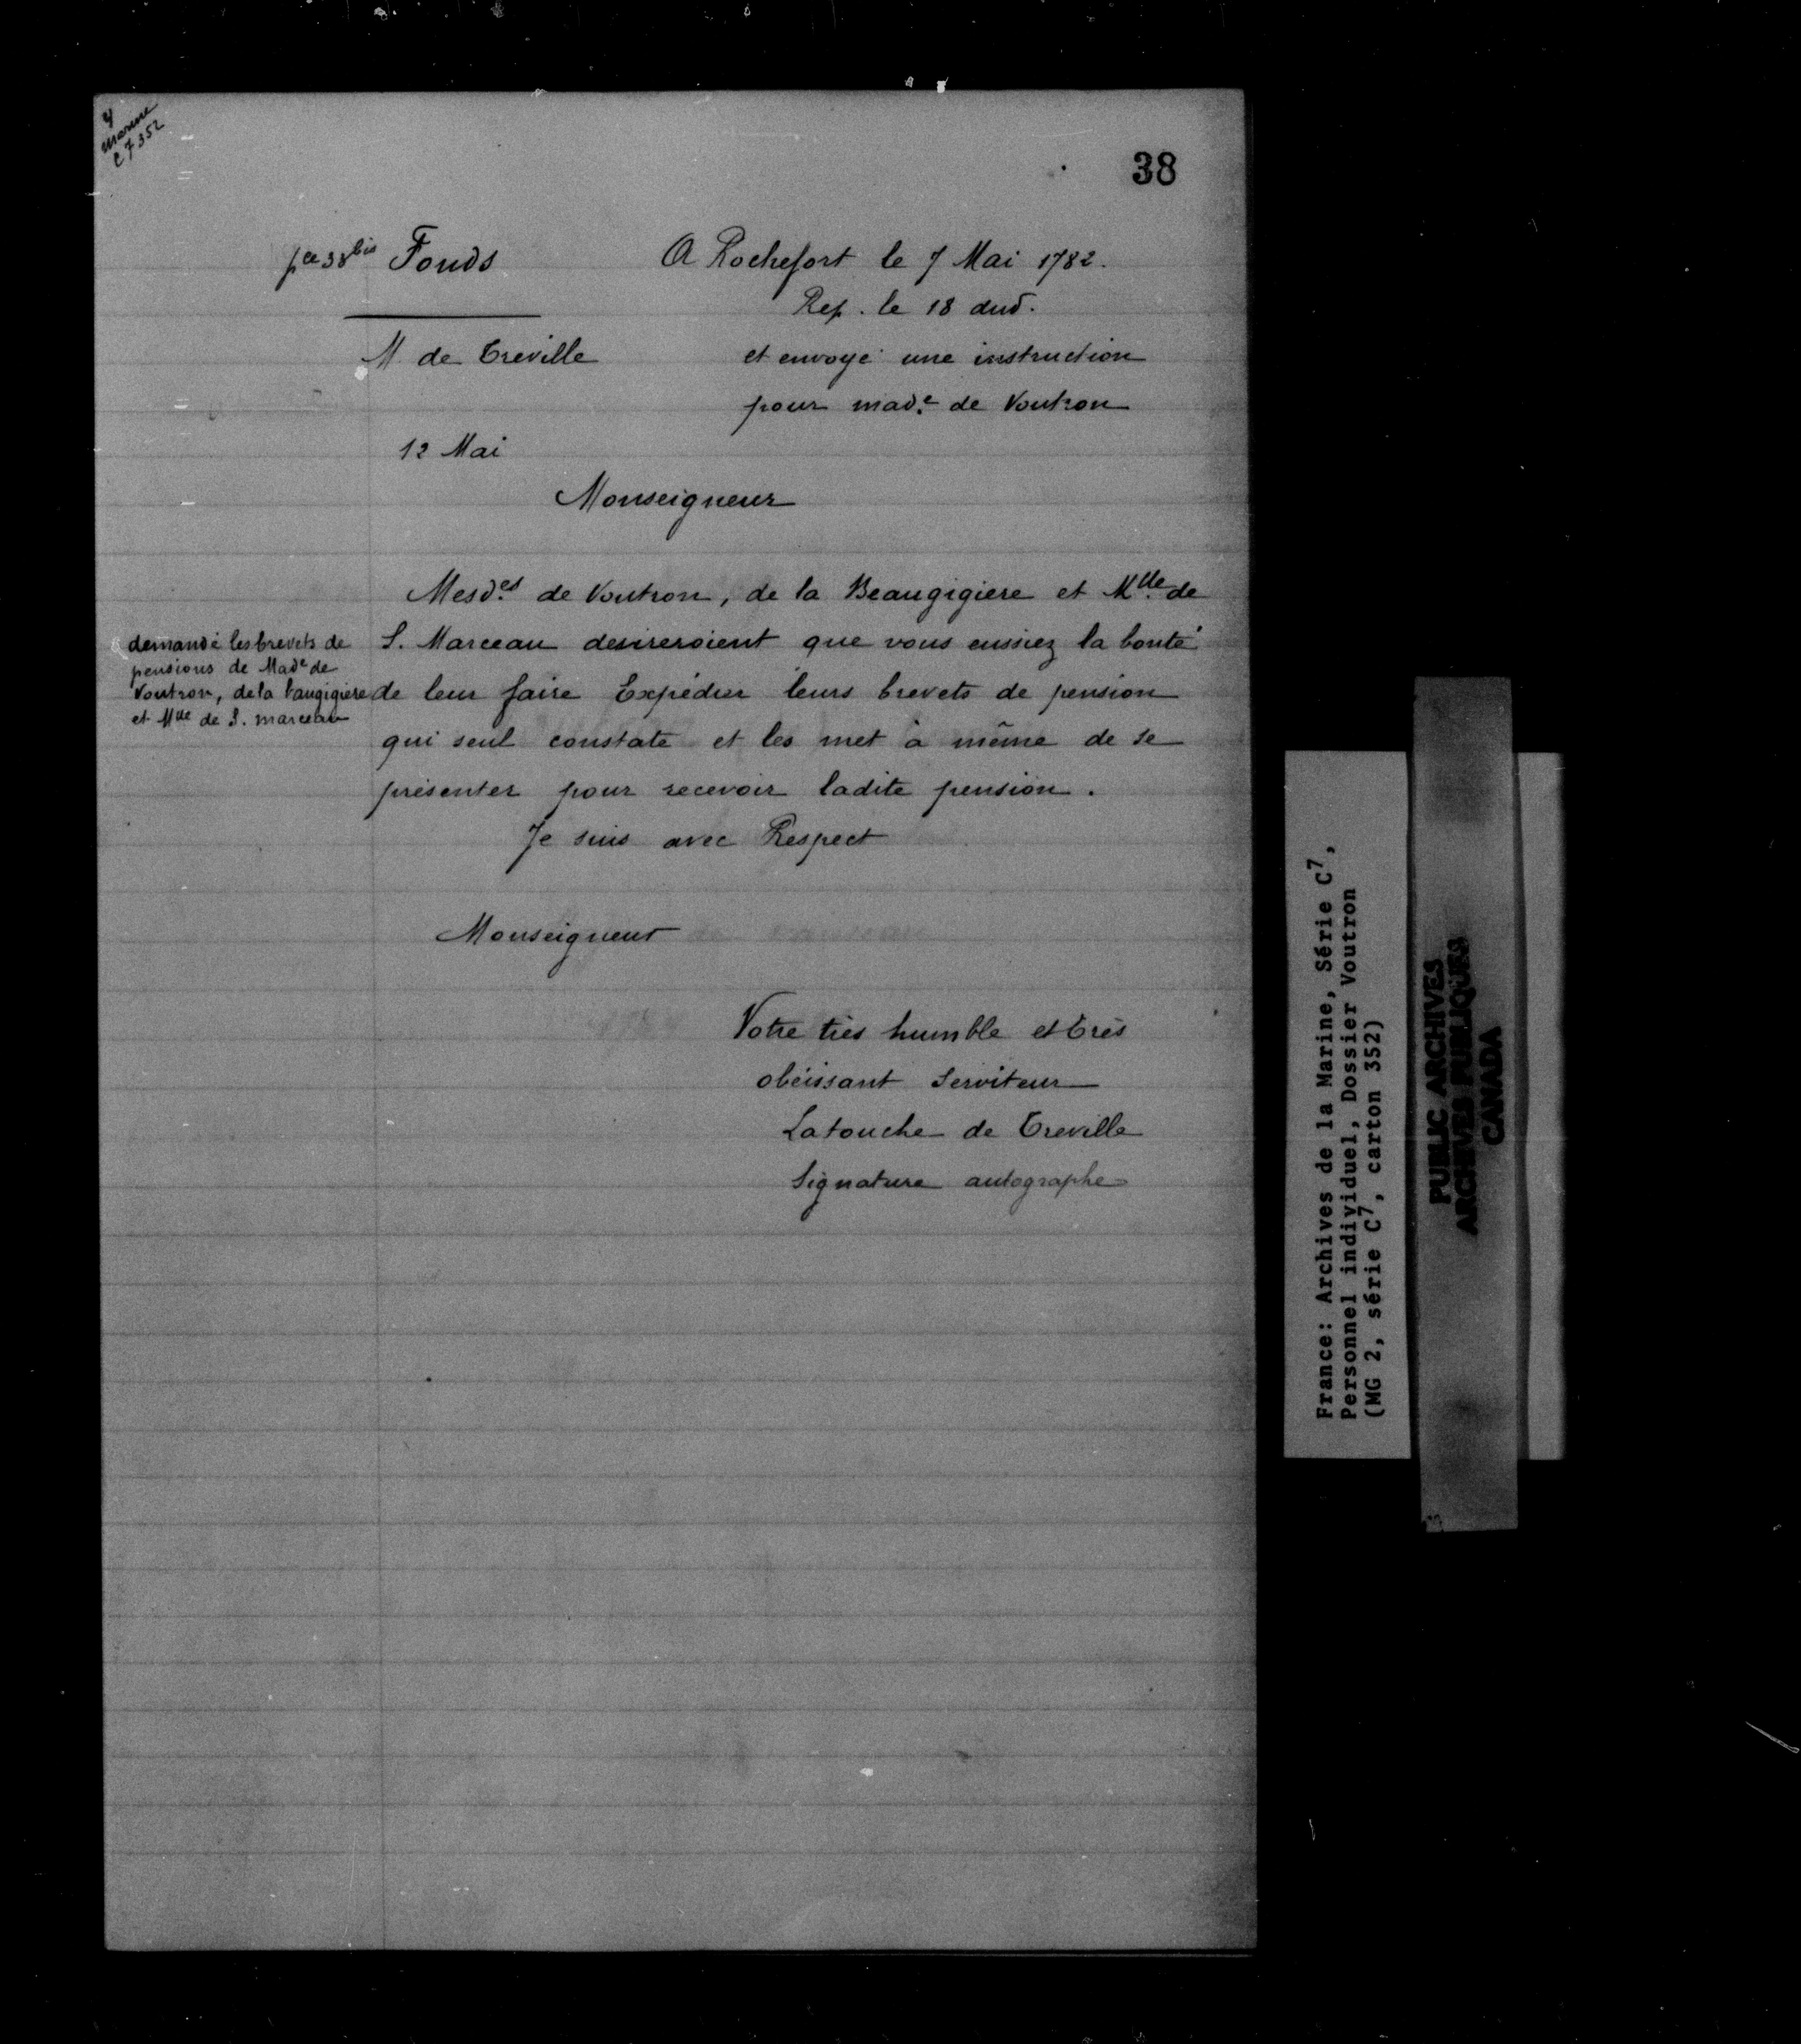 4
Marine
C 7 352
38
pce 38bis Fonds
A Rochefort le 7 Mai 1782.
Rep. le 18 dud.
M. de Treville
et envoyé une instruction
pour made. de Voutron
12 Mai
Monseigneur
Mesdes. de Voutron, de la Beaugigiere et Mlle. de
S. Marceau desireroient que vous eussiez la bonté
de leur faire Expédier leurs brevets de pension
qui seul constate et les met à même de se
présenter pour recevoir ladite pension.
demande les brevets de
pensions de Made de
Voutron, de la baugigiere
et Mlle de S. marceau
Je suis avec Respect
Monseigneur
Votre très humble et très
obéissant Serviteur
Latouche de Treville
Signature autographe
France: Archives de la Marine, Série C7,
Personnel individuel, Dossier Voutron
(MG 2, série C7, carton 352)
PUBLIC ARCHIVES
ARCHIVES PUBLIQUES
CANADA